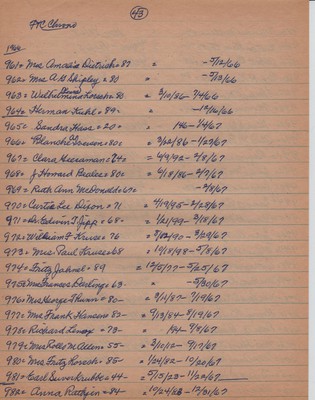 43
1966
961= Mrs Amasia Dietrich= 87 = -5/12/66
962= Mrs A G Shipley = 80 = -7/13/66
963= Wilhelmina Koresh= 80 = 3/10/86-7/4/66
964= Herman Kuhl= 89- = -12/16/66
965= Sandra Hass = 20= = 1946-1/4/67
966= Blanche Goevens= 80= = 3/22/86-1/23/67
967= Clara Heeraman= 74= = 4/9/92-2/8/67
968= J. Howard Beales= 80= = 6/18/86-2/7/67
969= Ruth Ann McDonald= = -2/8/67
970= Curtis Lee Dixon = 71 = 4/19/95-2/28/67
971= Dr. Edwin T Jipp = 68- = 1/21/99-3/18/67
972= William F Kruse = 76 = 3/22/90-3/29/67
973= Mrs. Paul Kruse= 68 = 10/18/98-5/8/67
974= Fritz Jahnel= 89 = 12/5/77-5/25/67
975= Mrs Frances Darling= 63- = -5/30/67
976= Mrs George Thunn= 80- = 3/11/87-7/19/67
977= Mrs Frank Hansen= 83- = 9/13/84-8/19/67
978= Richard Lenox = 73- = 1894-9/8/67
979= Mrs Rolla M. Allen= 55- = 2/10/12-9/17/67
980= Mrs Fritz Koresh= 85- = 1/24/82-10/20/67
981= Earl Suverkrubbe= 44- = 5/15/23-11/20/67
982= Anna Rathjen= 84- = 10/24/83-12/31/67